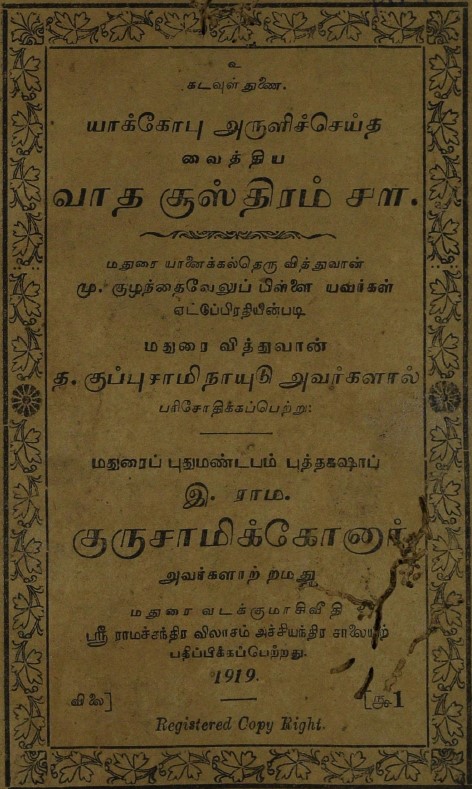 உ
கடவுள் துணை.
யாக்கோபு அருளிச்செய்த
வைத்திய
வாத சூஸ்திரம் ௪௱.
மதுரை யானைக்கல்தெரு வித்துவான்
மு. குழந்தைவேலுப் பிள்ளை யவர்கள்
ஏட்டுப்பிரதியின்படி
மதுரை வித்துவான்
த. குப்புசாமிநாயுடு அவர்களால்
பரிசோதிக்கப்பெற்று:
மதுரைப் புதுமண்டபம் புத்தகஷாப்
இ. ராம.
குருசாமிக்கோனார்
அவர்களாற் றமது
மதுரை வடக்குமாசிவீதி
ஸ்ரீ ராமச்சந்திர விலாசம் அச்சியந்திர சாலையிற்
பதிப்பிக்கப்பெற்றது.
1919.
விலை] [ரூ. 1
Registered Copy Right.